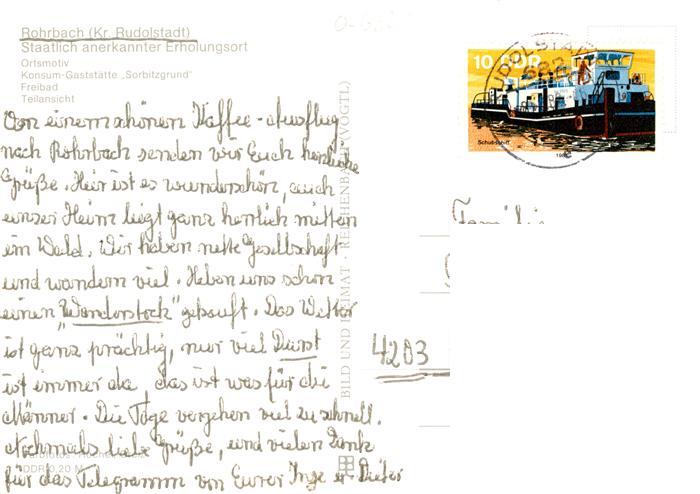 Rohrbach (Kr. Rudolstadt)
Staatlich anerkannter Erholungsort
Ortsmotiv
Konsum-Gaststätte „Sorbitzgrund"
Freibad
Teilansicht
Von einem schönen Kaffee-Ausflug
nach Rohrbach senden wir Euch herzliche
Grüße. Hier ist es wunderschön, auch
unser Heim liegt ganz herrlich mitten
im Wald. Wir haben nette Gesellschaft
und wandern viel. Haben uns schon
einen „Wanderstock" gekauft. Das Wetter
ist ganz prächtig, nur viel Durst
ist immer da das ist was für die
Männer. Die Tage vergehen viel zu schnell.
Nochmals liebe Grüße, und vielen Dank
für das Telegramm von Eurer Inge u. Dieter
DDR 0,20 M
BILD UND HEIMAT · REICHENBACH (VOGTL)
10 DDR
Schubschiff
Familie
4203